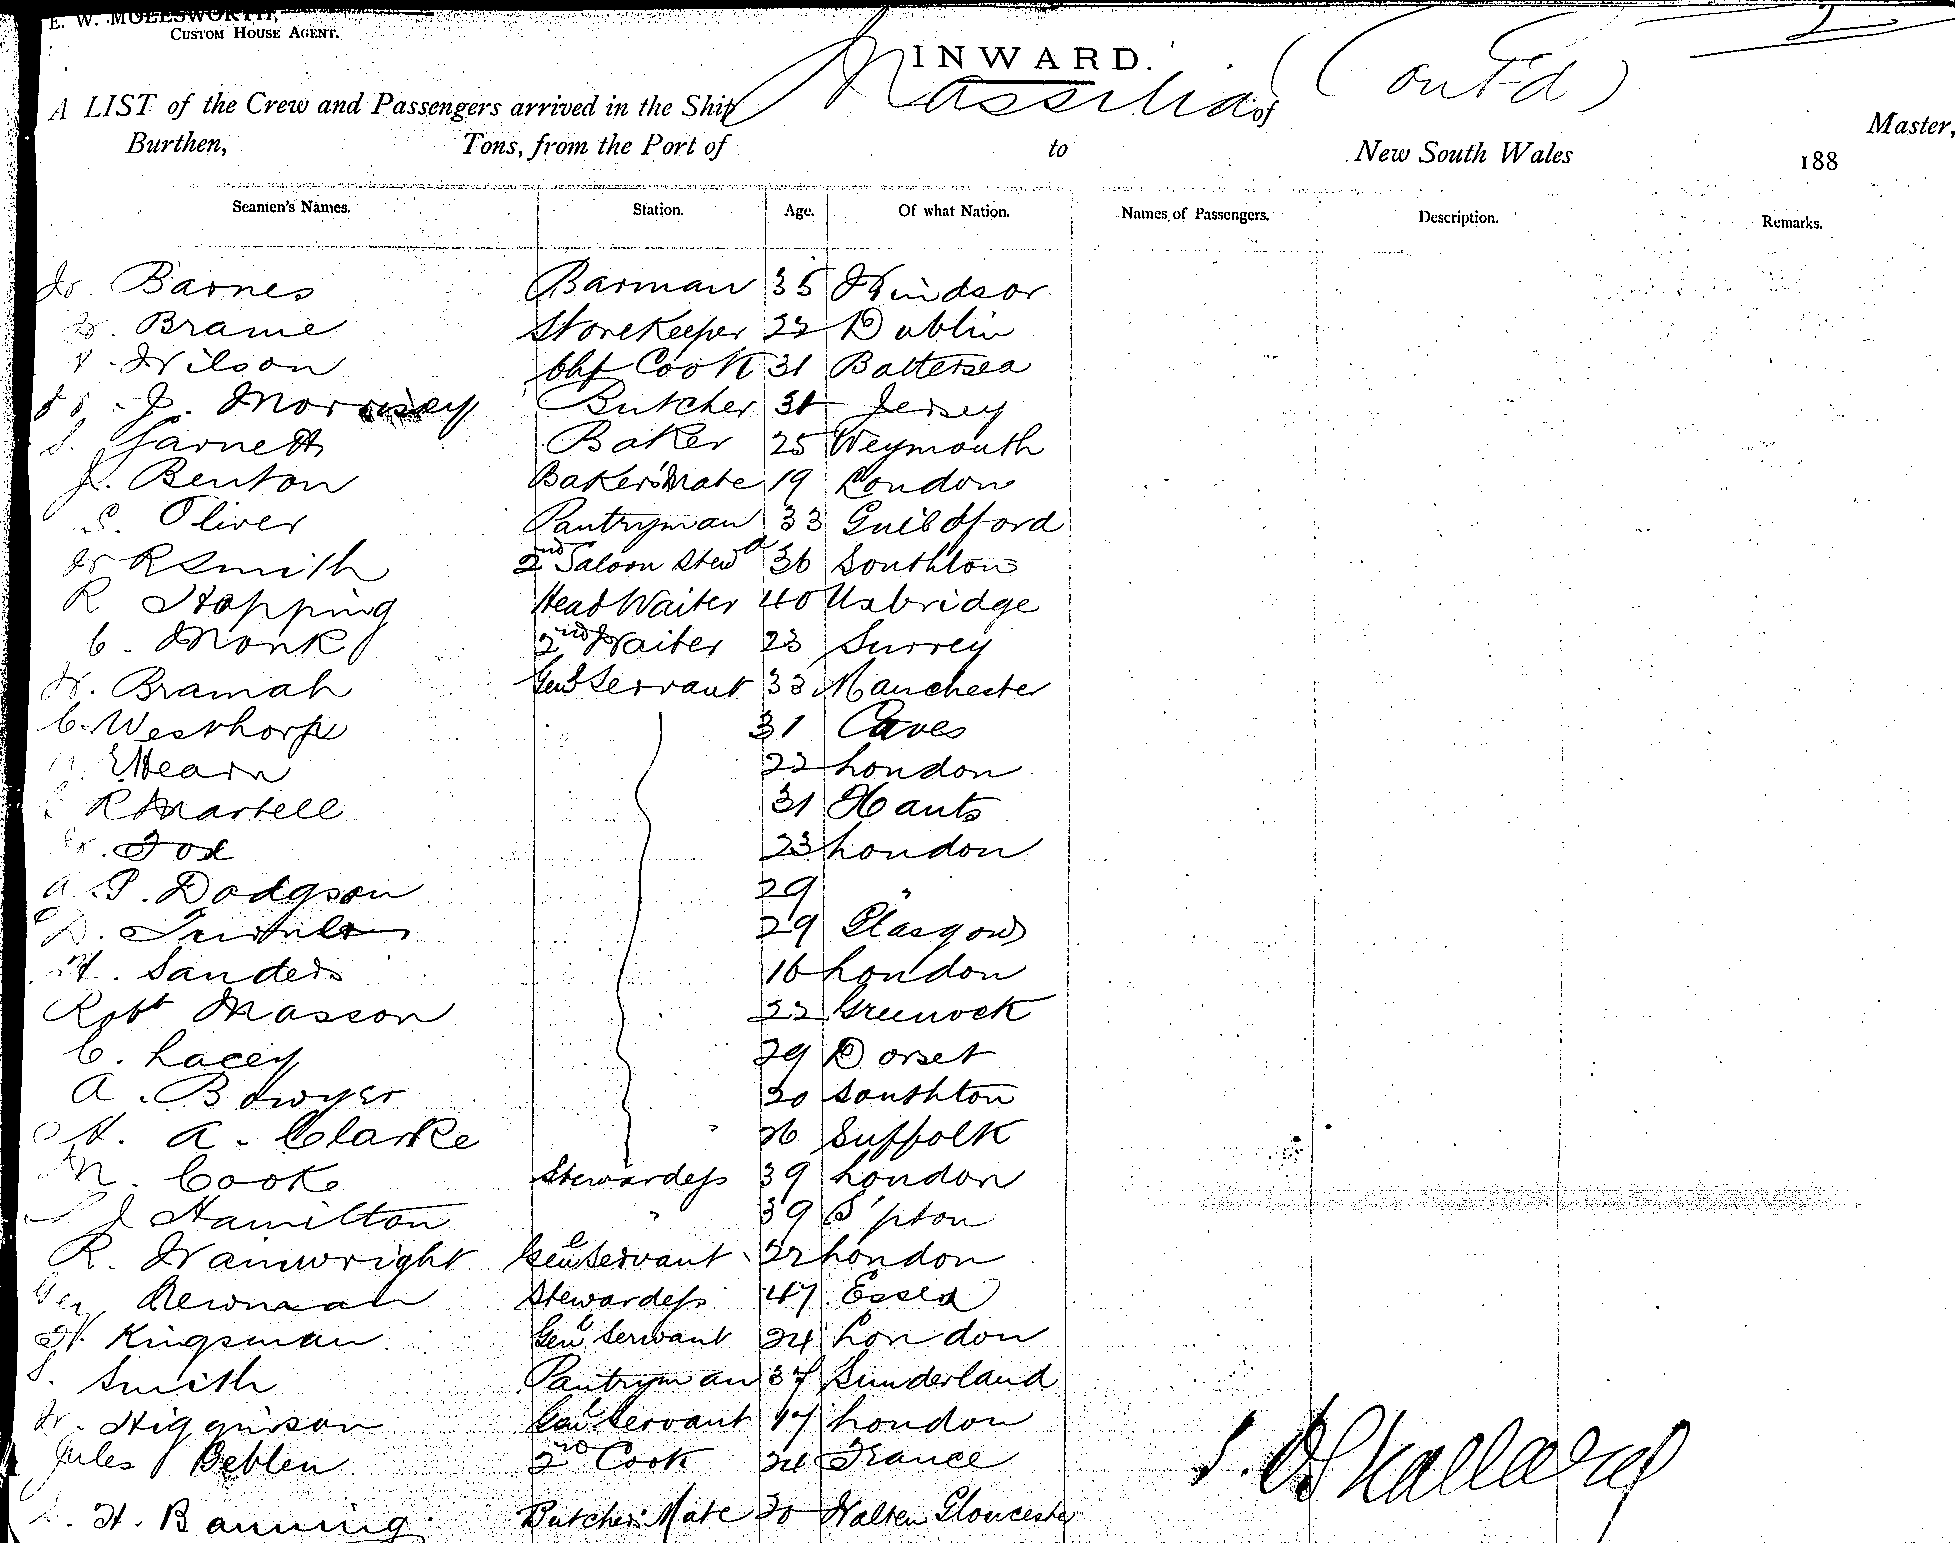 E. W. MOLESWORTH,
CUSTOM HOUSE AGENT.
INWARD.
A LIST of the Crew and Passengers arrived in the Ship Massilia of (Cont'd) Master,
Burthen, Tons, from the Port of to New South Wales 188
Seamen's Names. Station. Age. Of what Nation. Names of Passengers. Description. Remarks.
Barnes Barman 35 Windsor
Brame Storekeeper 22 Dublin
Wilson Cook 31 Battersea
J. Morrisey Butcher 31 Jersey
Garnett Baker 25 Weymouth
J. Benton Baker's Mate 19 London
S. Oliver Pantryman 33 Guildford
R Smith 2nd Saloon Stewd 36 Southton
R Hopping Head Waiter 40 Uxbridge
C. Monk 2nd Waiter 23 Surrey
W. Bramah Genl Servant 33 Manchester
C. Westhorp 31
Hearn 22 London
R Martell 31 Hants
Fox 23 London
A. P. Dodgson 29 "
D. 29 Glasgow
H. Sanders 16 London
Robt Masson 22 Greenock
C. Lacey 29 Dorset
A. Bowyer 20 Southton
H. A. Clarke 26 Suffolk
M. Cooke Stewardess 39 London
J Hamilton " 39 S'pton
R. Wainwright Genl Servant 22 London
Newman Stewardess 47 Essex
H. Kingsman Genl Servant 24 London
Smith Pantryman 37 Sunderland
W. Higginson Genl Servant 17 London
Jules 2nd Cook 24 France
H. Banning Butcher's Mate 20 Gloucester